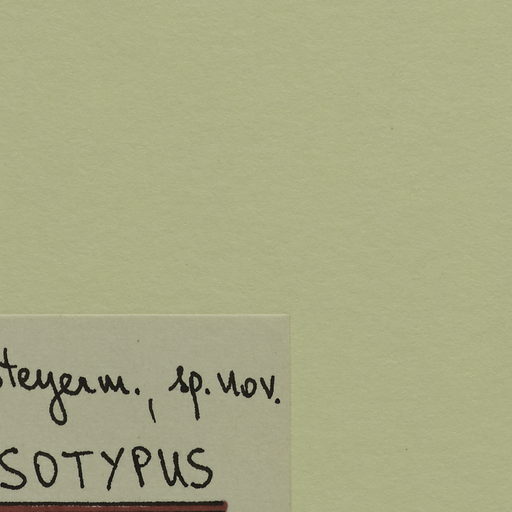 steyerm., sp. nov.
SOTYPUS